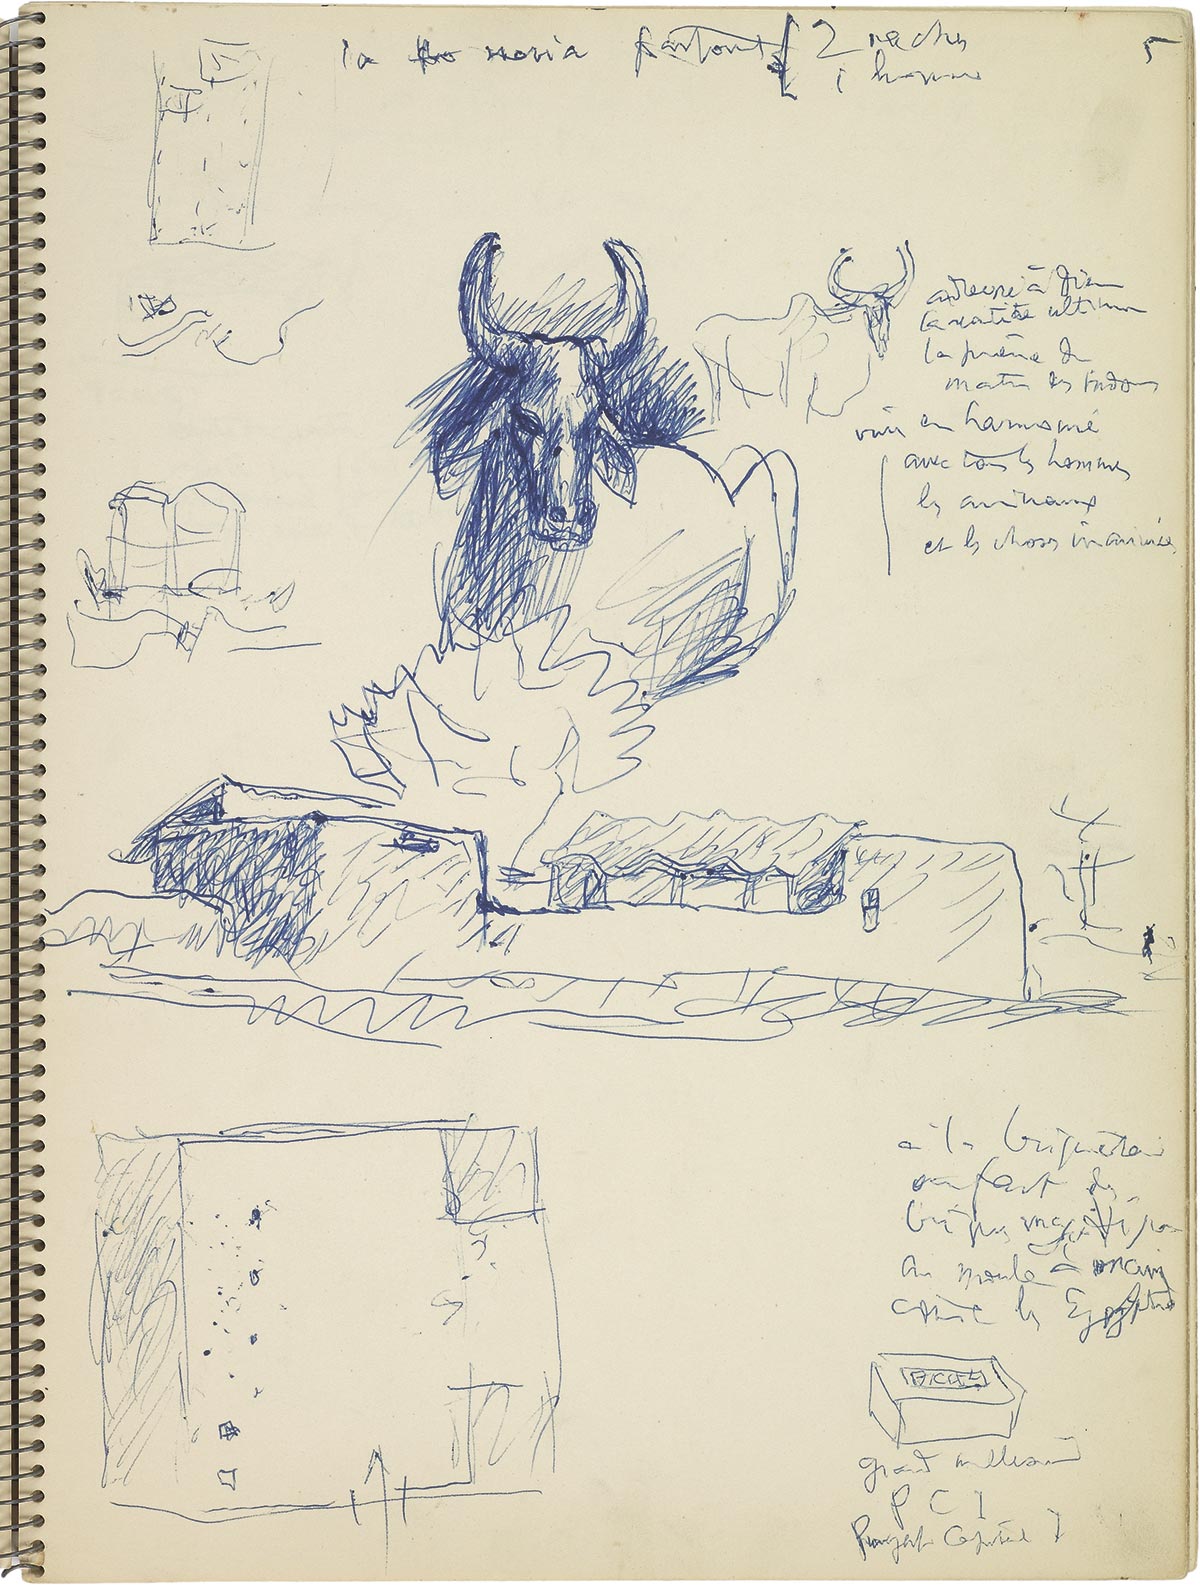 la noria partout { 2 vaches
1 homme
5
adressé à Dieu
la vérité ultime
la prière du
matin des hindous
vivre en harmonie
avec tous les hommes
les animaux
et les choses inanimées
à la briqueterie
on fait des
briques
au moule à main
comme les Égyptiens
grand
P C I
Punjab Capital I